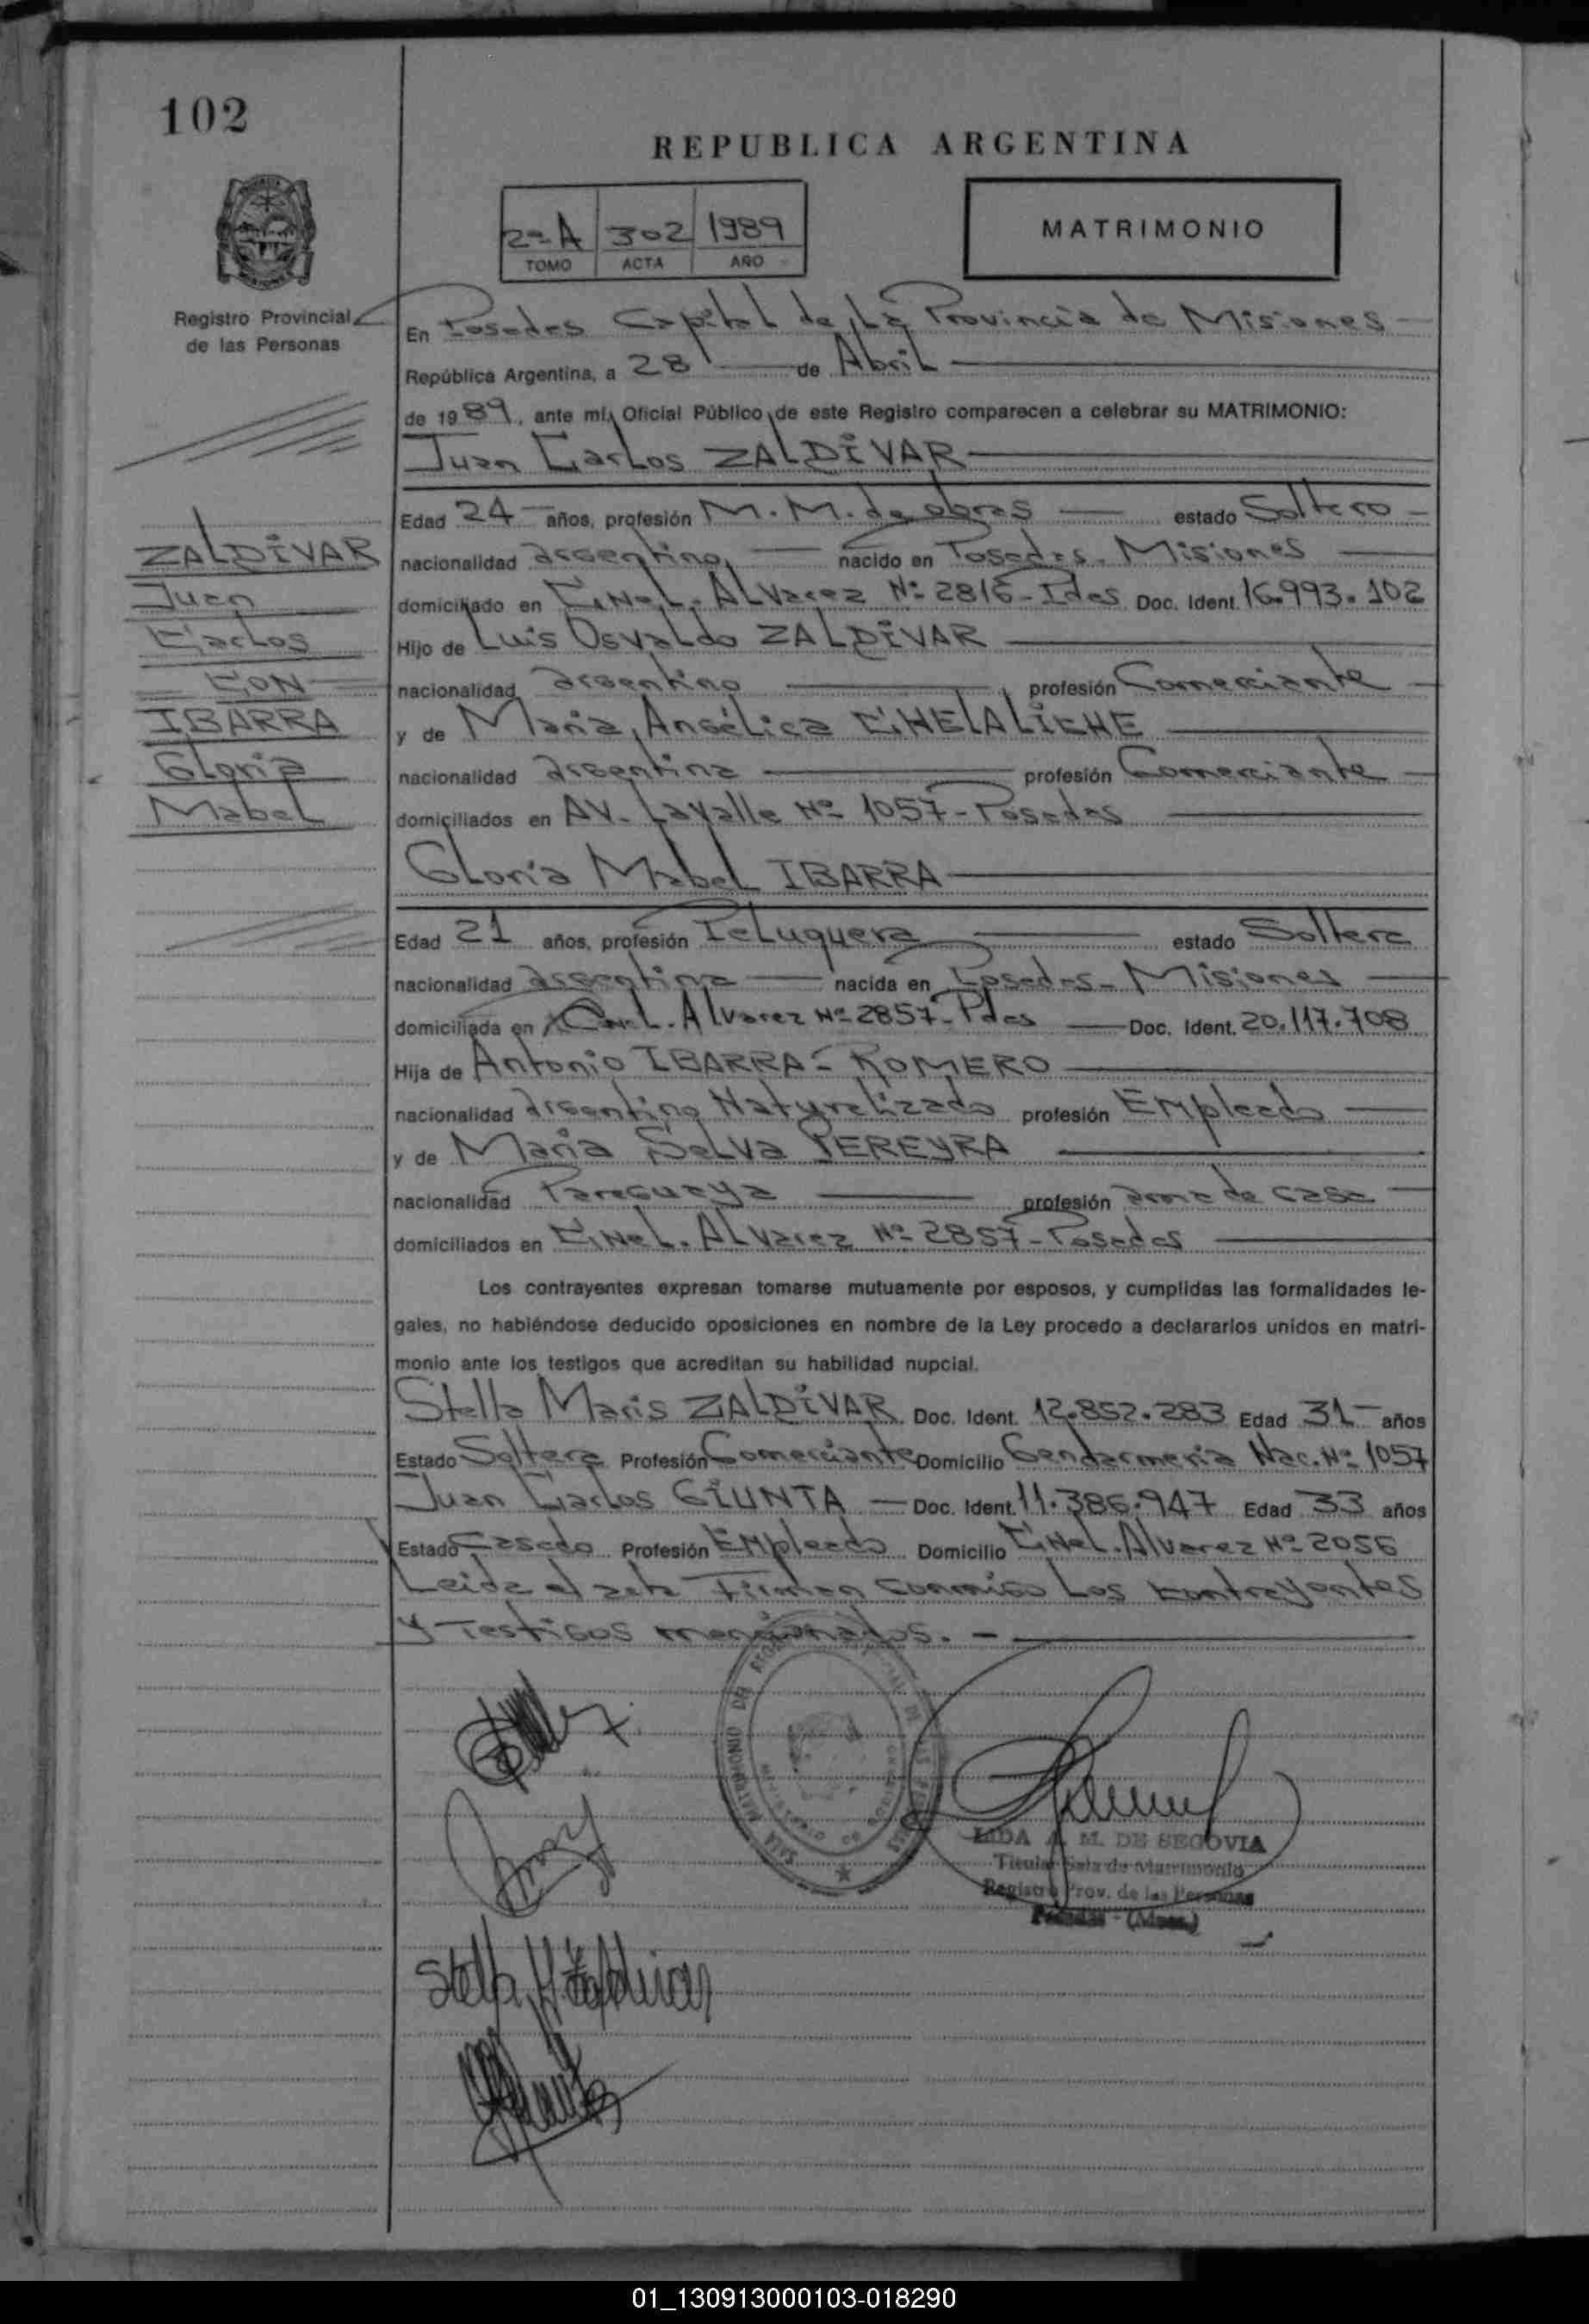 102
REPUBLICA ARGENTINA
2º A 302 1989
TOMO ACTA AÑO
MATRIMONIO
Registro Provincial
de las Personas
En Posadas Capital de La Provincia de Misiones
República Argentina, a 28 de Abril
de 1989, ante mí, Oficial Público de este Registro comparecen a celebrar su MATRIMONIO:
Juan Carlos ZALDIVAR
Edad 24 años, profesión M.M. de obras estado Soltero
nacionalidad argentino nacido en Posadas - Misiones
domiciliado en CNel. Alvarez Nº 2816 - Pdas Doc. Ident. 16.993.102
Hijo de Luis Osvaldo ZALDIVAR
nacionalidad argentino profesión Comerciante
y de Maria Angélica CHELALICHE
nacionalidad argentina profesión Comerciante
domiciliados en AV. Lavalle Nº 1057 - Posadas
Gloria Mabel IBARRA
Edad 21 años, profesión Peluquera estado Soltera
nacionalidad argentina nacida en Posadas - Misiones
domiciliada en Cnel. Alvarez Nº 2857 - Pdas Doc. Ident. 20.117.708
Hija de Antonio IBARRA - ROMERO
nacionalidad argentino Naturalizado profesión Empleado
y de Maria Selva PEREYRA
nacionalidad Paraguaya profesión ama de casa
domiciliados en CNel. Alvarez Nº 2857 - Posadas
Los contrayentes expresan tomarse mutuamente por esposos, y cumplidas las formalidades le-
gales, no habiéndose deducido oposiciones en nombre de la Ley procedo a declararlos unidos en matri-
monio ante los testigos que acreditan su habilidad nupcial.
Stella Maris ZALDIVAR Doc. Ident. 12.852.283 Edad 31 años
Estado Soltera Profesión Comerciante Domicilio Gendarmeria Nac. Nº 1057
Juan Carlos GIUNTA Doc. Ident. 11.386.947 Edad 33 años
Estado Casado Profesión Empleado Domicilio CNel. Alvarez Nº 2056
Leida el acta Firman conmigo Los contrayentes
y Testigos mencionados.
ZALDIVAR
Juan
Carlos
CON
IBARRA
Gloria
Mabel
LIDA A. M. DE SEGOVIA
Titular Sala de Matrimonio
Registro Prov. de las Personas
Posadas - (Mnes.)
Stella M Zaldivar
01_130913000103-018290